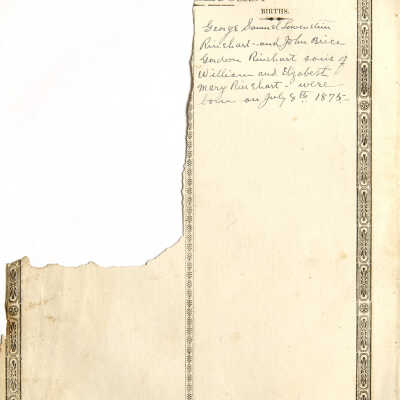 BIRTHS.
George Samuel Lowenstein
Rinehart and John Brice
Gordon Rinehart sons of
William and Elzabeth
Mary Rinehart - were
born on July 8th 1875